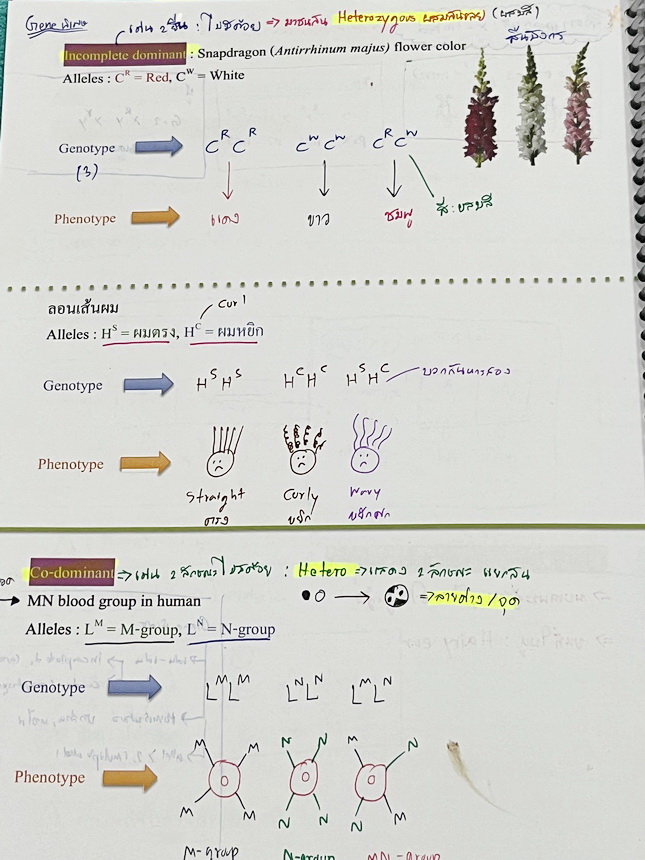 Gene พิเศษ
เด่น 2 ยีน : ไม่มีด้อย ⇒ มาชนกัน Heterozygous ผสมกันเลย (ผสมสี)
Incomplete dominant : Snapdragon (Antirrhinum majus) flower color
ลิ้นมังกร
Alleles : C^R = Red, C^W = White
Genotype C^R C^R C^W C^W C^R C^W
(3)
Phenotype แดง ขาว ชมพู สี : ผสมสี
ลอนเส้นผม
Curl
Alleles : H^S = ผมตรง, H^C = ผมหยิก
Genotype H^S H^S H^C H^C H^S H^C บวกกันหารสอง
Phenotype
Straight Curly Wavy
ตรง หยิก หยักศก
Co-dominant ⇒ เด่น 2 ลักษณะ ไม่มีด้อย : Hetero ⇒ แสดง 2 ลักษณะ แยกกัน
→ MN blood group in human → ⇒ ลายด่าง / จุด
Alleles : L^M = M-group, L^N = N-group
Genotype L^M L^M L^N L^N L^M L^N
M M N N M N
Phenotype
M M N N N M
M-group N-group MN-group